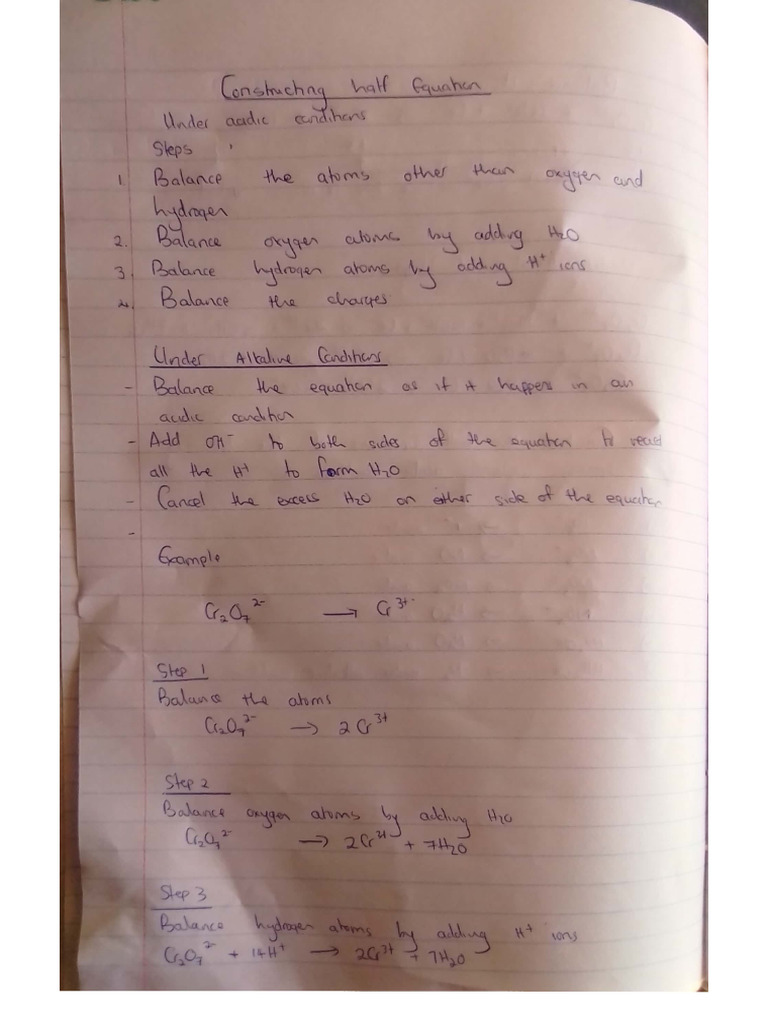 Constructing half Equation
Under acidic conditions
Steps
1. Balance the atoms other than oxygen and
hydrogen
2. Balance oxygen atoms by adding H₂O
3. Balance hydrogen atoms by adding H⁺ ions
4. Balance the charges
Under Alkaline Conditions
- Balance the equation as if it happens in an
acidic condition
- Add OH⁻ to both sides of the equation to react
all the H⁺ to form H₂O
- Cancel the excess H₂O on either side of the equation
-
Example
Cr₂O₇²⁻ → Cr³⁺
Step 1
Balance the atoms
Cr₂O₇²⁻ → 2Cr³⁺
Step 2
Balance oxygen atoms by adding H₂O
Cr₂O₇²⁻ → 2Cr³⁺ + 7H₂O
Step 3
Balance hydrogen atoms by adding H⁺ ions
Cr₂O₇²⁻ + 14H⁺ → 2Cr³⁺ + 7H₂O